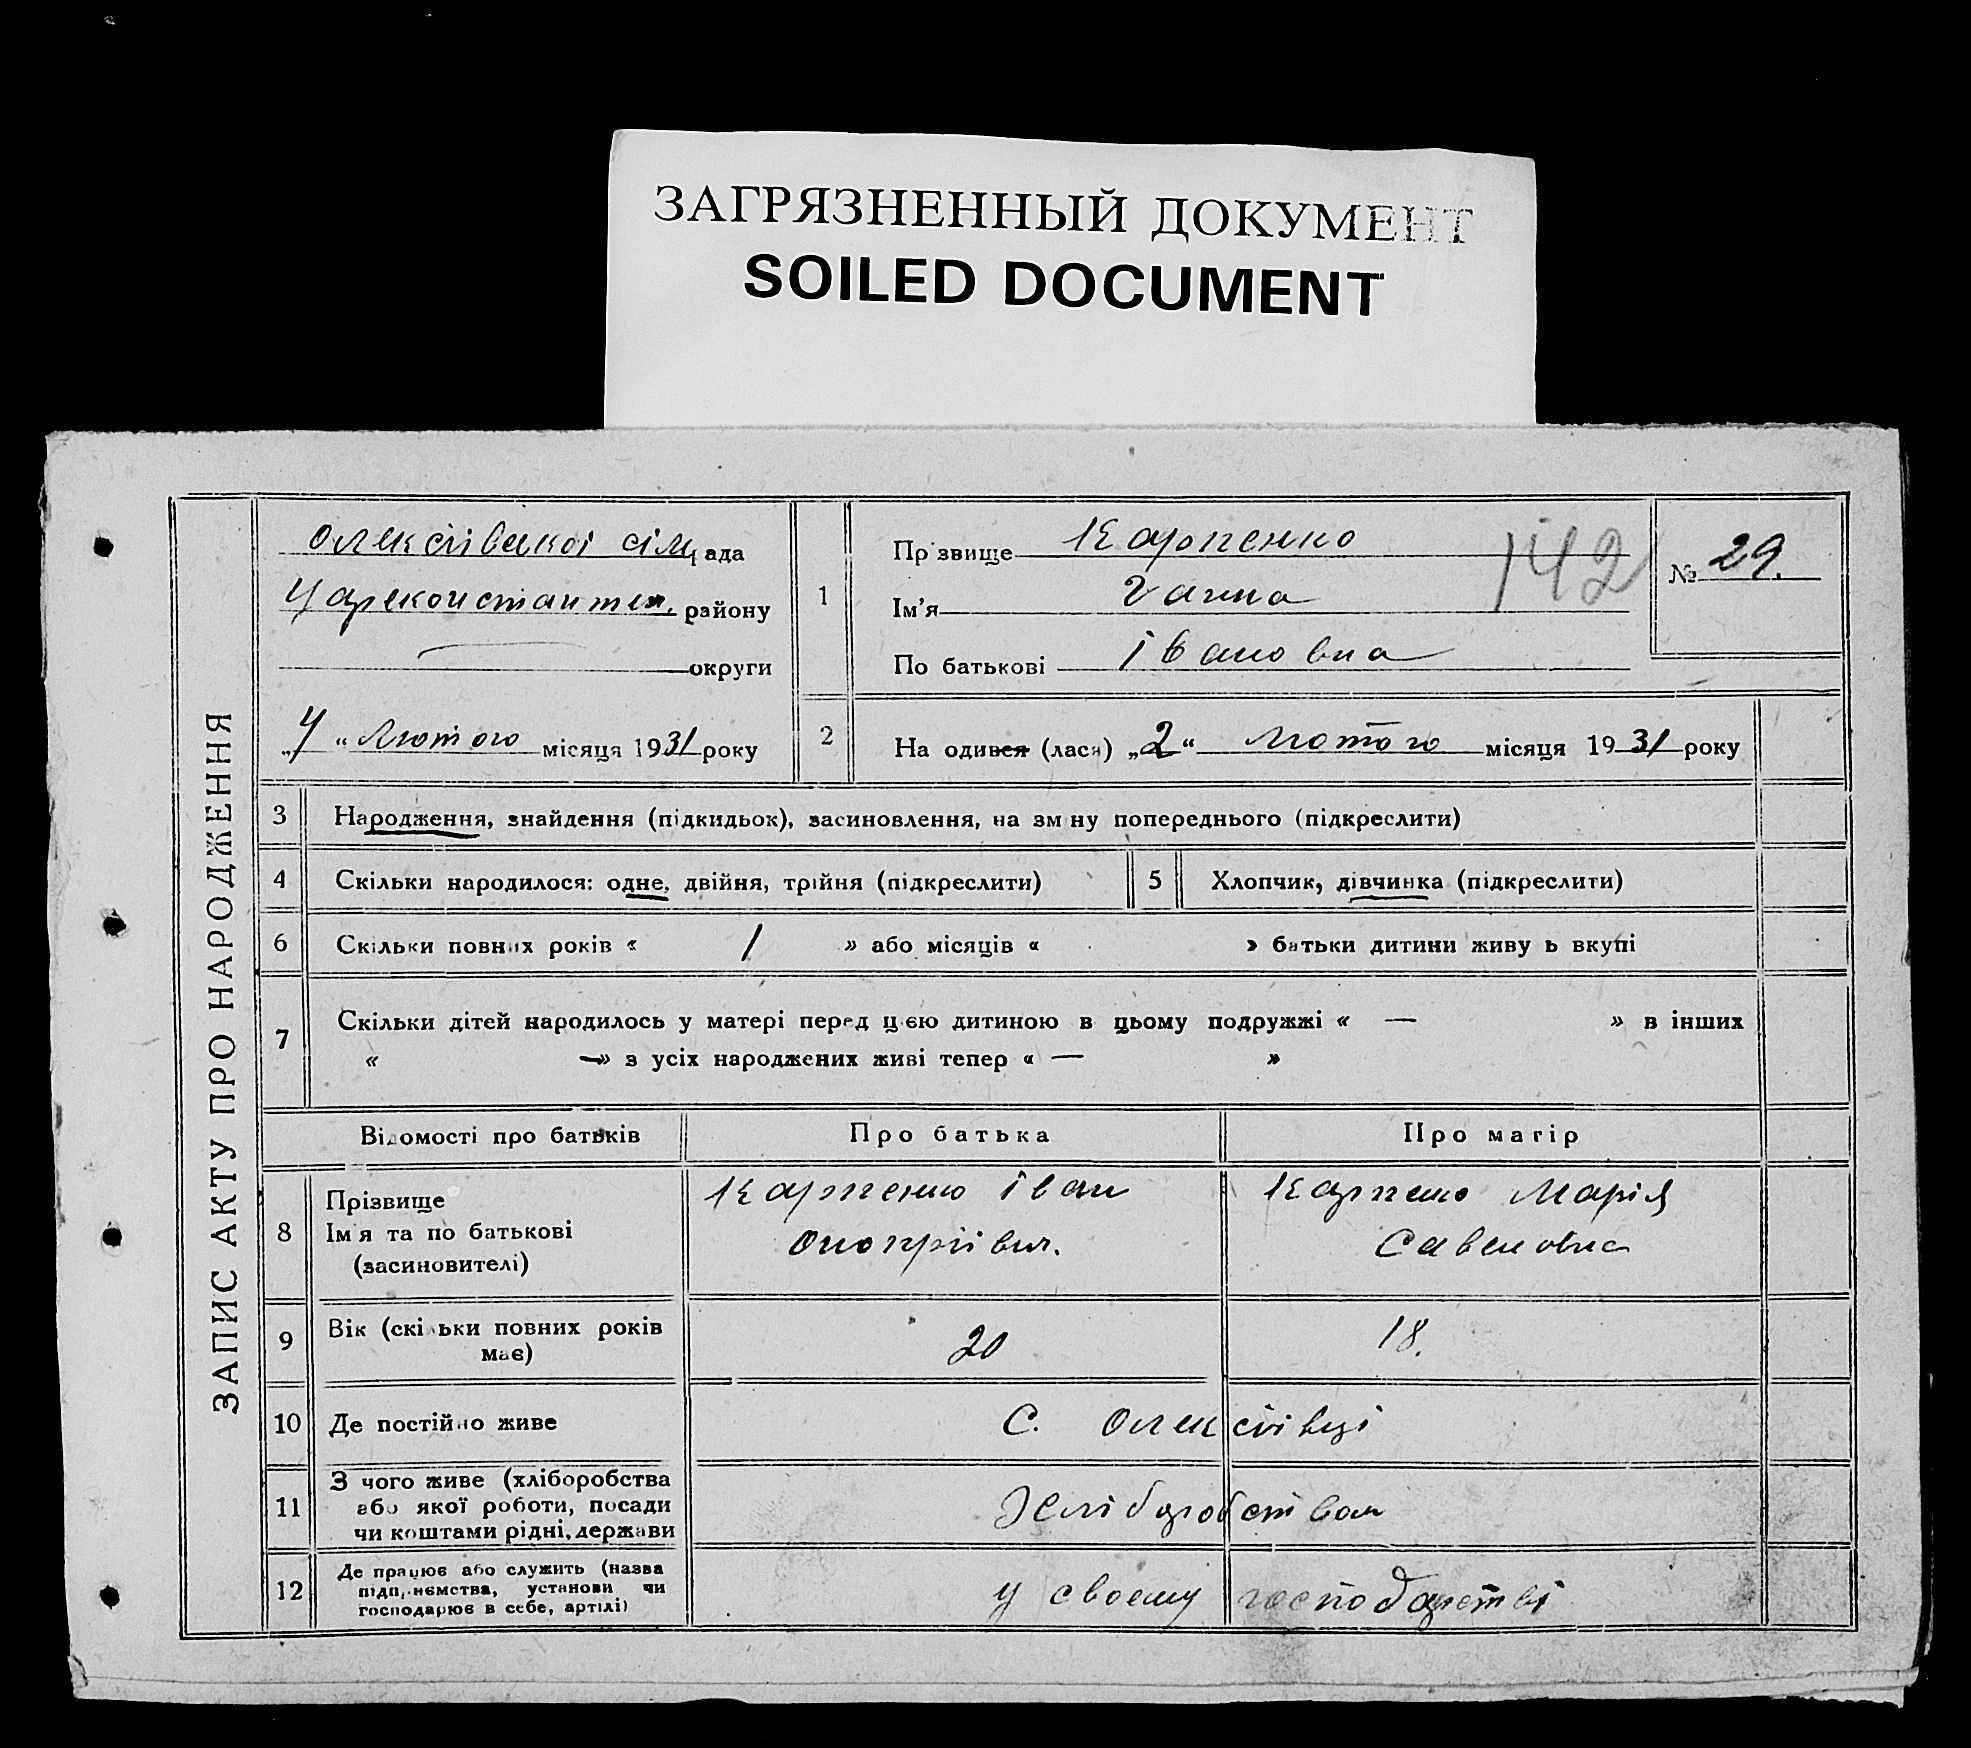 ЗАГРЯЗНЕННЫЙ ДОКУМЕНТ
SOILED DOCUMENT
ЗАПИС АКТУ ПРО НАРОДЖЕННЯ
Олексіївської сіл рада
Царекостянтин. району
округи
„4“ Лютого місяця 1931 року
1
Прізвище Карпенко
Ім'я Ганна
По батькові Івановна
142
№ 29.
2
Народився (лася) „2“ Лютого місяця 1931 року
3 Народження, знайдення (підкидьок), засиновлення, на зміну попереднього (підкреслити)
4 Скільки народилося: одне, двійня, трійня (підкреслити) 5 Хлопчик, дівчинка (підкреслити)
6 Скільки повних років « 1 » або місяців « » батьки дитини живуть вкупі
7 Скільки дітей народилось у матері перед цією дитиною в цьому подружжі « — » в інших
« —» з усіх народжених живі тепер « — »
Відомості про батьків Про батька Про матір
8
Прізвище
Ім'я та по батькові
(засиновителі)
Карпенко Іван
Онопріївич.
Карпенко Марія
Савеловна
9 Вік (скільки повних років
має)
20 18.
10 Де постійно живе С. Олексіівці
11
З чого живе (хліборобства
або якої роботи, посади
чи коштами рідні, держави
Хліборобством
12
Де працює або служить (назва
підприємства, установи чи
господарює в себе, артілі)
у своему господарстві